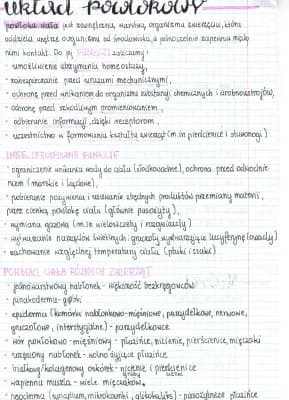 układ powłokowy
powłoka ciała jest zewnętrzną warstwą organizmu zwierzęcia, która
oddziela wnętrze organizmu od środowiska, a jednocześnie zapewnia między
nimi kontakt. Do jej FUNKCJI zaliczamy:
• umożliwienie utrzymania homeostazy,
• zabezpieczenie przed urazami mechanicznymi,
• ochronę przed wnikaniem do organizmu substancji chemicznych i drobnoustrojów,
• ochronę przed szkodliwym promieniowaniem,
• odbieranie informacji dzięki receptorom,
• uczestnictwo w formowaniu kształtu zwierząt (m.in. pierścienice i stawonogi)
INNE, SPECYFICZNE FUNKCJE
• ograniczenie wnikania wody do ciała (słodkowodne), ochrona przed odwodnie-
niem (morskie i lądowe),
• pobieranie pożywienia i usuwanie zbędnych produktów przemiany materii,
przez cienką powłokę ciała (głównie pasożyty),
• wymiana gazowa (m.in. wieloszczety i rozgwiazdy)
• wytwarzanie narządów świetlnych: gruczoły wytwarzające lucyferynę (owady)
• zachowanie względnej temperatury ciała (ptaki i ssaki)
POWŁOKI CIAŁA RÓŻNYCH ZWIERZĄT
• jednowarstwowy nabłonek - większość bezkręgowców
• pinakoderma - gąbki
• epiderma (komórki nabłonkowo-mięśniowe, parzydełkowe, nerwowe,
gruczołowe, interstycjalne) - parzydełkowce
• wór powłokowo-mięśniowy - płazińce, nicienie, pierścienice, mięczaki
• rzęskowy nabłonek - wolno żyjące płazińce
• białkowy/kolagenowy oskórek - nicienie i pierścienice
gruby cienki
• wapienna muszla - wiele mięczaków
• neoderma (syncytium, mikrokosmki, glikokaliks) - pasożytnicze płazińce